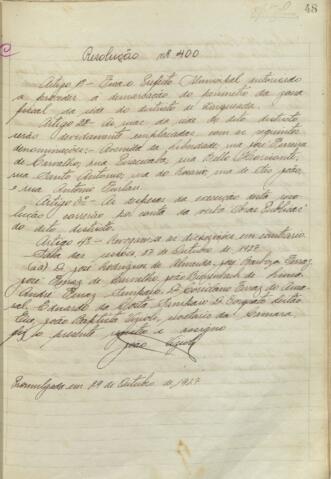 48
Resolução nº 400
Artigo 1º - Fica o Prefeito Municipal autorizado
a proceder a demarcação do perimetro da zona
fiscal da séde do districto de
Artigo 2º - As ruas da séde do dito districto
serão devidamente emplacadas com as seguintes
denominações: - Avenida da Liberdade, rua José Ferraz
de Carvalho, rua Piracicaba, rua Bello Horizonte,
rua Santo Antonio, rua do Rosario, rua de São João,
e rua Antonio Furlan.
Artigo 3º - As despesas da execução desta reso-
lução correrão por conta da verba Obras Publicas
do dito districto.
Artigo 4º - Revogam-se as disposições em contrario.
Sala das sessões, 17 de Outubro de 1927
(aa) Dr. José Rodrigues de Almeida, José Barboza Ferraz,
José Ferraz de Carvalho, João
André Ferraz Sampaio, Dr. Coriolano Ferraz do Ama-
ral, Eduardo da Costa Sampaio, Dr.
Eu, João Baptista, secretario da Camara,
fiz o presente e assigno
João
Promulgada em 29 de Outubro de 1927